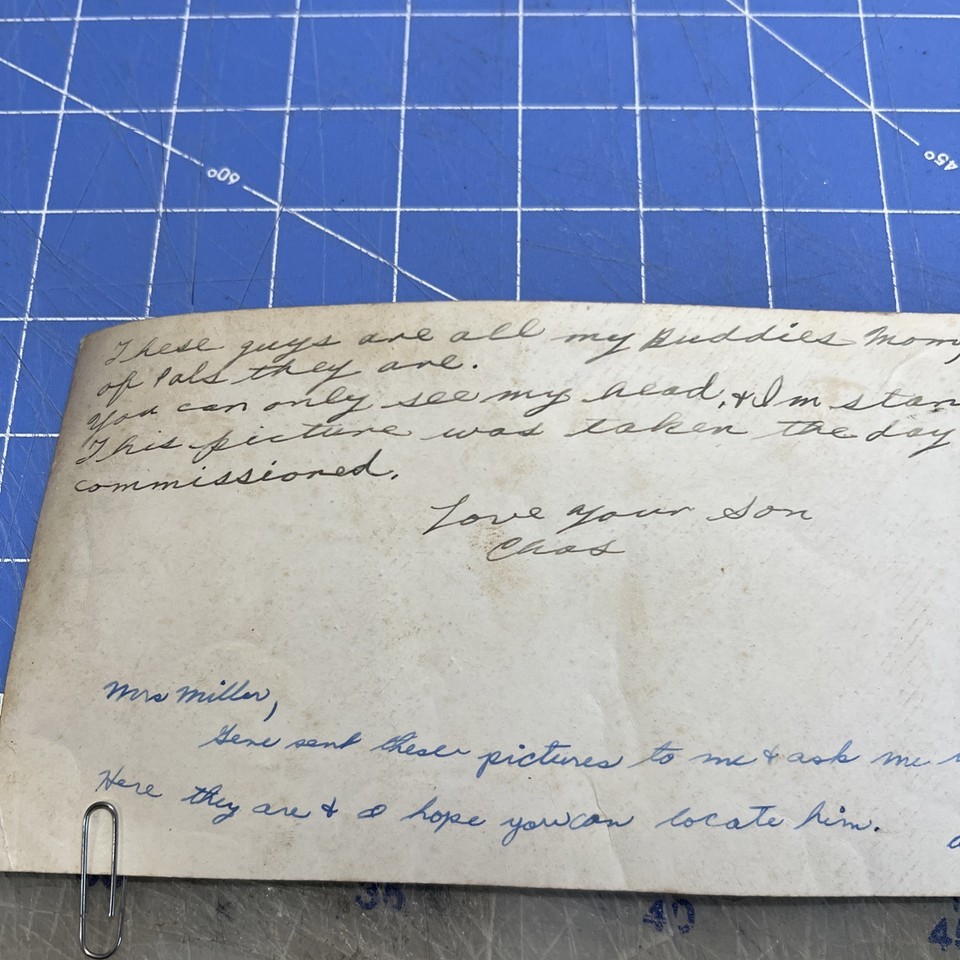 60°
45°
These guys are all my Buddies Mom,
of Pals they are.
You can only see my head, & I'm stan
This picture was taken the day
commissioned.
Love your Son
Chas
Mrs Miller,
Gene sent these pictures to me & ask me
Here they are & I hope you can locate him.
35
40
45